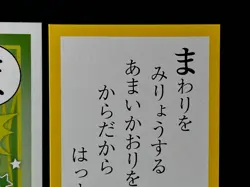 まわりを
みりょうする
あまいかおりを
からだから
はっ